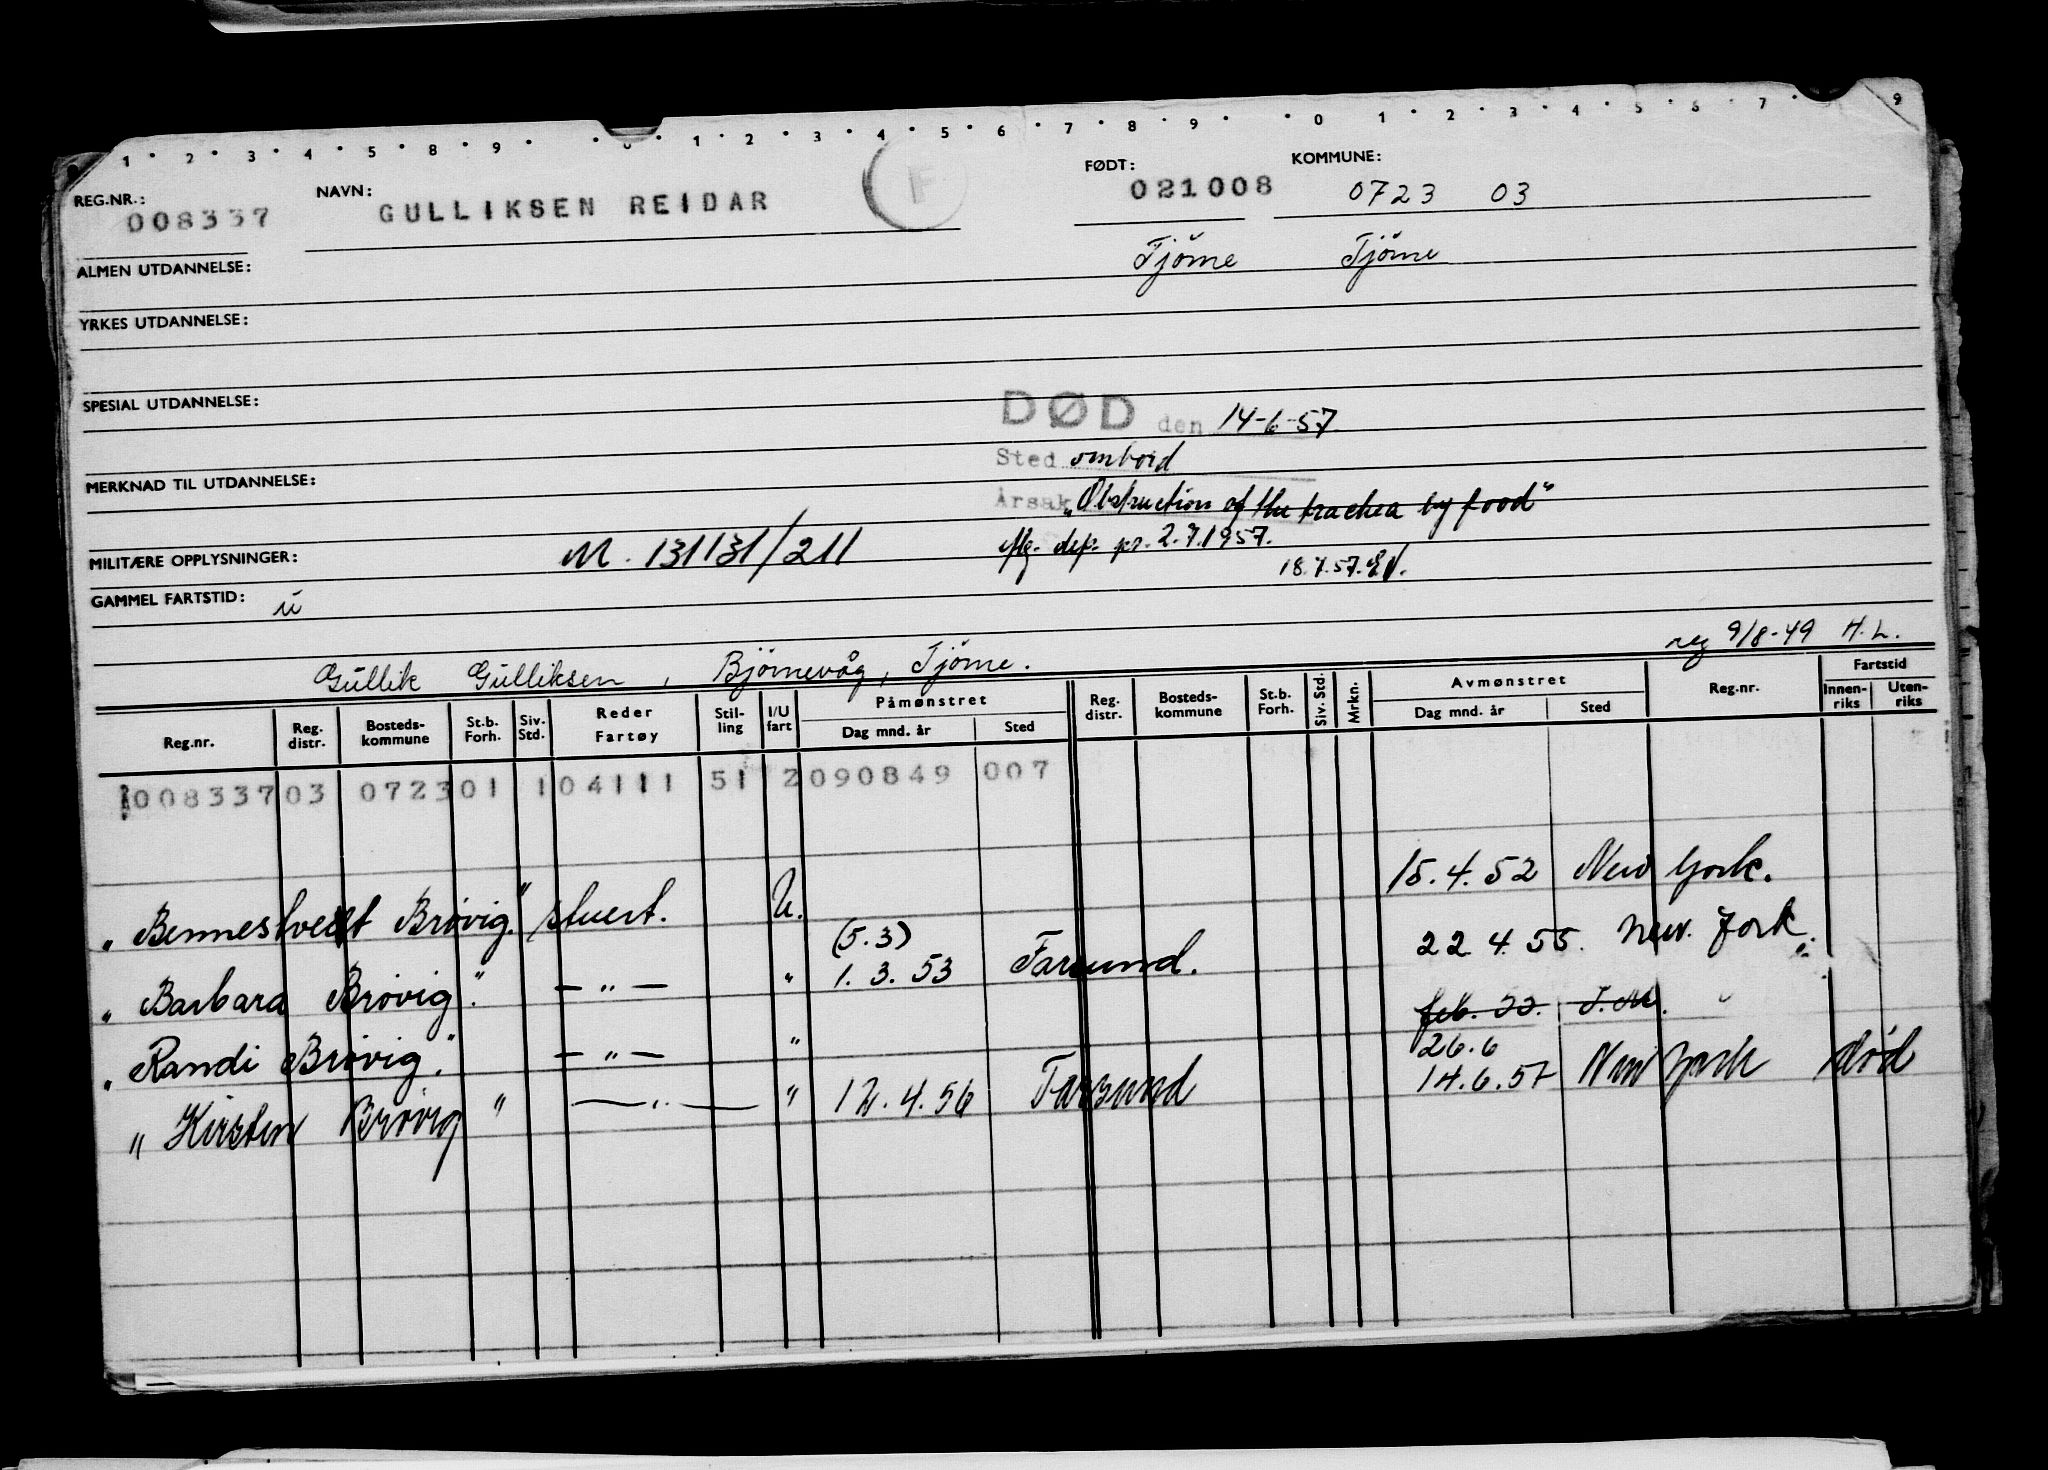 1 · 2 · 3 · 4 · 5 · 8 · 9 · · 0 · 1 · 2 · 3 · 4 · 5 · 6 · 7 · 8 · 9 · · 0 1 · 2 · 3 · 4 · 5 · 6 · 7 · 9
REG.NR.: 008337 NAVN: GULLIKSEN REIDAR F FØDT: 021008 KOMMUNE: 0723 03
ALMEN UTDANNELSE: Tjöme Tjöme
YRKES UTDANNELSE:
SPESIAL UTDANNELSE:
DØD den 14-6-57
Sted ombord
MERKNAD TIL UTDANNELSE:
Årsak „Obstruction of the trachea by food"
MILITÆRE OPPLYSNINGER: M. 13131/211 iflg. dep. pr. 2.7.1957.
18.7.57.
GAMMEL FARTSTID: u
reg 9/8-49 H.L.
Gullik Gulliksen, Bjørnevåg, Tjöme.
Reg.nr. Reg. distr. Bosteds-kommune St.b. Forh. Siv. Std. Reder Fartøy Stil-ling I/U fart Påmønstret Dag mnd. år Sted Reg. distr. Bosteds-kommune St.b. Forh. Siv. Std. Mrkn. Avmønstret Dag mnd. år Sted Reg.nr. Fartstid Innen-riks Uten-riks
008337 03 0723 01 1 04111 51 2 090849 007
„Bennestvedt Brøvig." stuert. U. 15.4.52 New York.
(5.3)
„Barbara Brøvig". — " — " 1.3.53 Farsund. 22.4.55. New. York.
„Randi Brøvig". — " — "
26.6
„Kirsten Brøvig" — " — " 12.4.56 Farsund 14.6.57 New York død